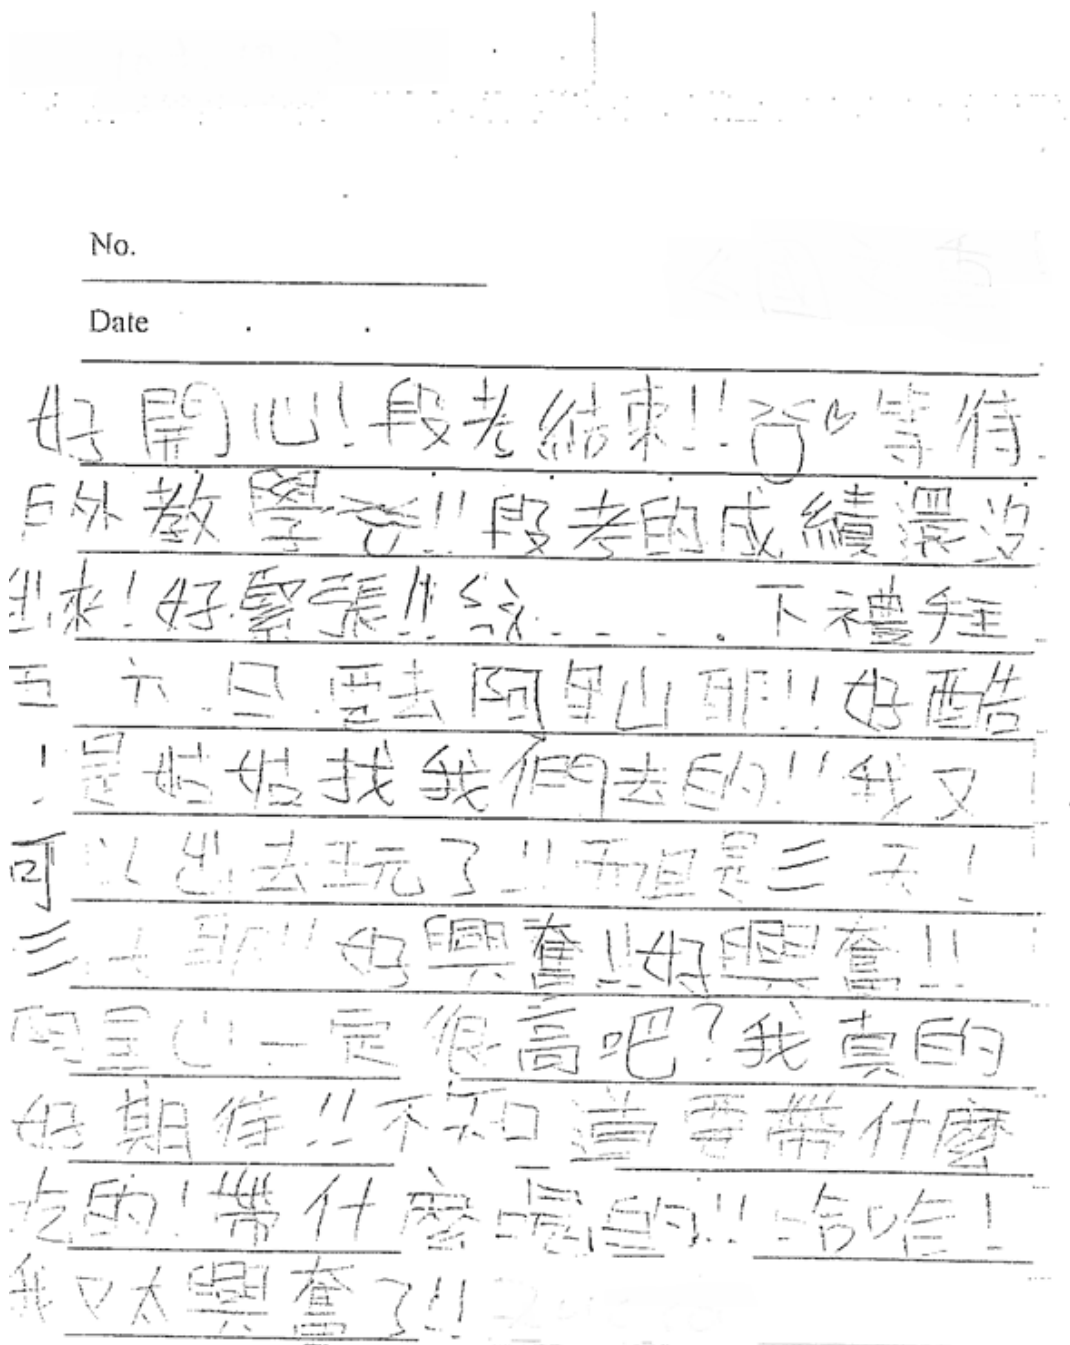 No.
Date
好開心!段考結束!!等待
戶外教學!!段考的成績還沒
出來!好緊張!!....下禮拜
五.六.日.要去阿里山耶!!好酷
!是姑姑找我們去的!!我又
可以出去玩了!!而且是三天!
三天耶!!好興奮!!好興奮!!
阿里山一定很高吧?我真的
好期待!!不知道要帶什麼
吃的!帶什麼喝的!!哈哈!
我又太興奮了!!